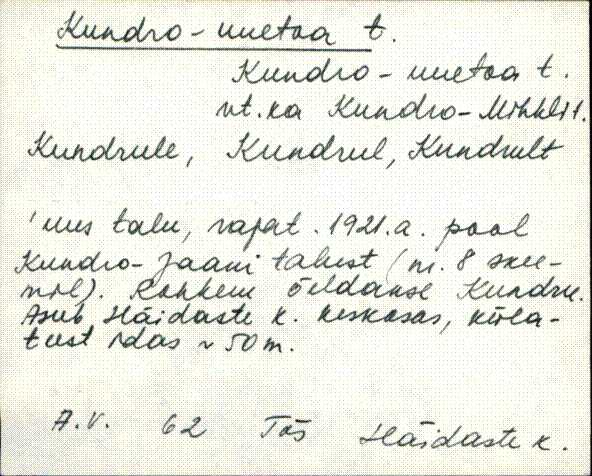 Kundro-uuetoa t.
Kundro-uuetoa t.
vt. ka Kundro-Mihkli t.
Kundrule, Kundrul, Kundrult
'uus talu, rajat. 1921.a. pool
Kundro-Jaani talust (nr. 8 skee-
mil). Rohkem öeldakse Kundru.
Asub Häidaste k. keskosas, küla-
teest idas ~ 50 m.
A.V. 62 Tõs Häidaste k.